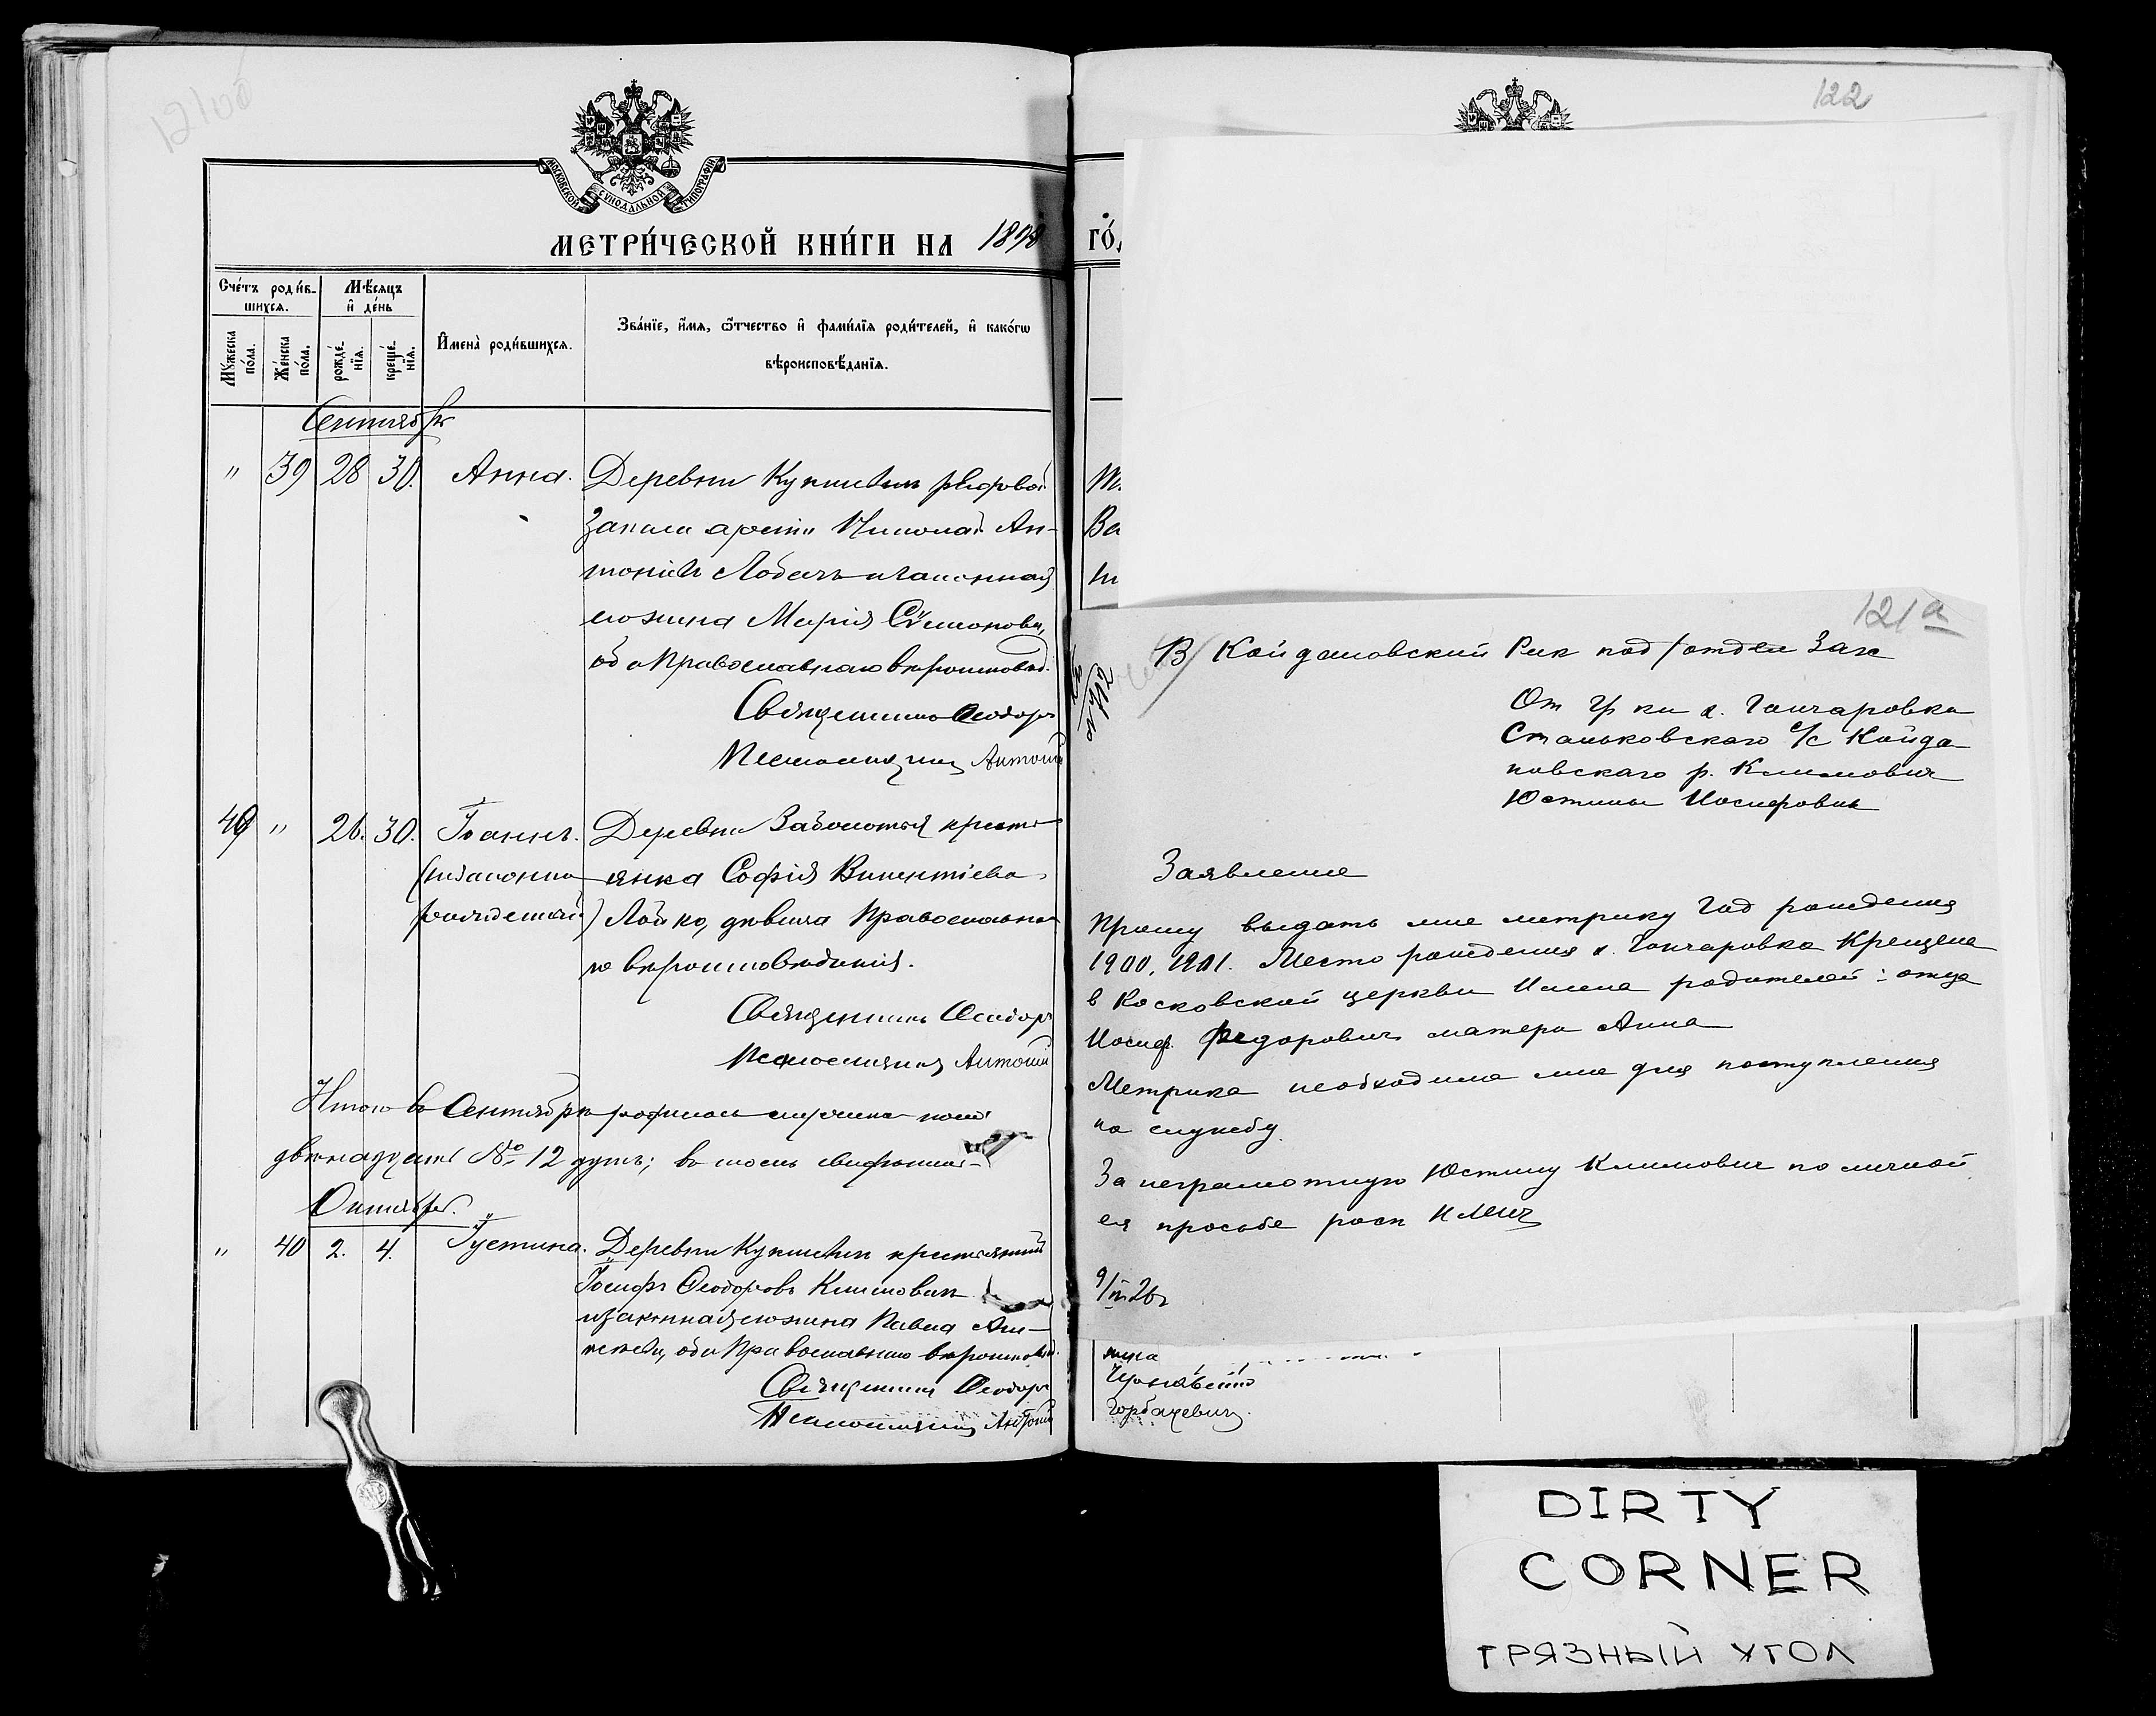 121об
МОСКОВСКОЙ СѴНОДАЛЬНОЙ ТИПОГРАФІИ
МЕТРИ́ЧЕСКОЙ КНИ́ГИ НА 1898
Сче́тъ роди́в-
шихся.
Мѣ́сяцъ
и҆ де́нь
Мꙋ́жеска
по́ла.
Же́нска
по́ла.
рожде́-
нїѧ.
креще́-
нїѧ.
И҆мена̀ роди́вшихся.
Зва́нїе, и҆́мѧ, ѻ҆́тчество и҆ фами́лїѧ роди́телей, и҆ како́гѡ
вѣроисповѣ́данїѧ.
Сентябрь
" 39 28 30. Анна. Деревни
запаса Николай Ан-
тоніевъ законная
жена Марія
оба Православнаго вѣроисповѣд.
Священникъ Ѳеодоръ
Псаломщикъ Антоній
" 26. 30. Іоаннъ. Деревни Заболотья кресть-
(незаконно- янка Софія Викентіева
рожденный) Лойко, дѣвица Православна-
го вѣроисповѣданія.
Священникъ Ѳеодоръ
Псаломщикъ Антоній
Итого въ Сентябрѣ родилось мужеска пола
двѣнадцать № 12 душъ;
Октябрь.
" 40 2. 4. Іустина. Деревни крестьянинъ
Іосифъ Ѳеодоровъ Климовичъ
и законная жена его Павла
оба Православнаго вѣроисповѣд.
Священникъ Ѳеодоръ
Псаломщикъ Антоній
122
го́д
Ва
121а
В Койдановский Рик под/отдел Загс
От гр ки х. Гончаровка
Станьковского с/с Койда-
новскаго р. Климович
Юстины Иосифовны
Заявление
Прошу выдать мне метрику Год рождения
1900, 1901. Место рождения х. Гончаровка Крещена
в Косковской церкви Имена родителей: отца
Иосиф Федорович матери Анна
Метрика необходима мне для поступления
на службу.
За неграмотную Юстину Климович по личной
ея просьбе росп
9/IV 26г
Горбацевичъ.
DIRTY
CORNER
ГРЯЗНЫЙ УГОЛ